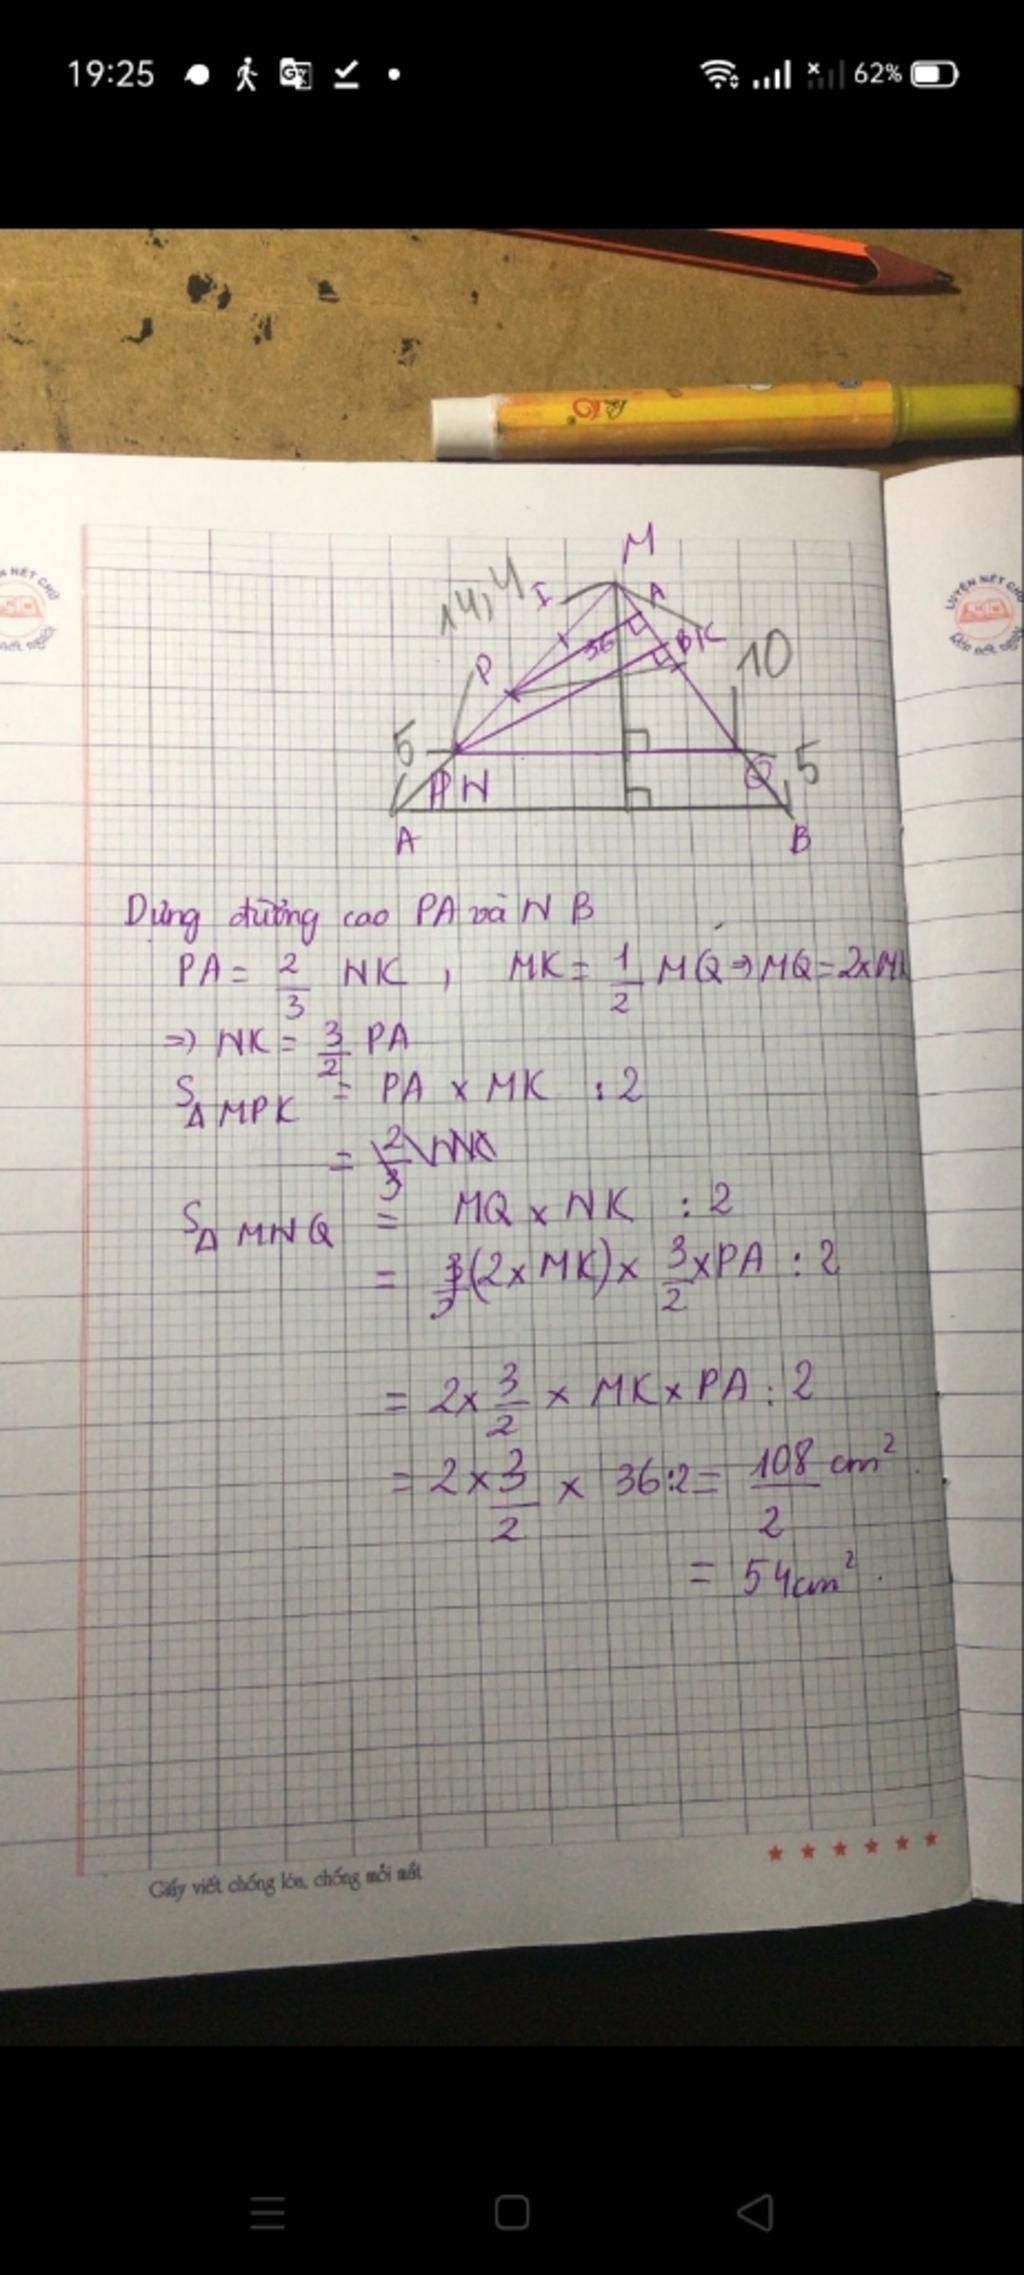 19:25
62%
M
14,4
I
A
36
BK
P
10
5
N
Q
5
A
B
Dựng đường cao PA và NB
PA = 2/3 NK, MK = 1/2 MQ ⇒ MQ = 2x
⇒ NK = 3/2 PA
SΔMPK = PA x MK : 2
= 2/3
SΔMNQ = MQ x NK : 2
= (2 x MK) x 3/2 x PA : 2
= 2 x 3/2 x MK x PA : 2
= 2 x 3/2 x 36:2 = 108/2 cm²
= 54cm².
Giấy viết chống lóa, chống mỏi mắt
LUYỆN NÉT CHỮ